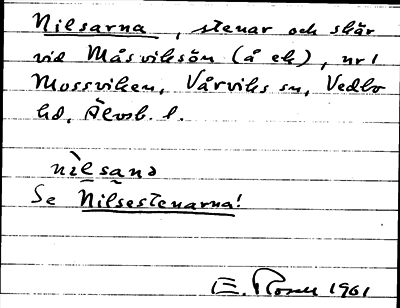 Nilsarna, stenar och skär
vid Måsviksön (å ek), nr 1
Mossviken, Vårviks sn, Vedbo
hd, Älvsb. l.
nìl̃sanə
Se Nilsestenarna!
E. Rosell 1961